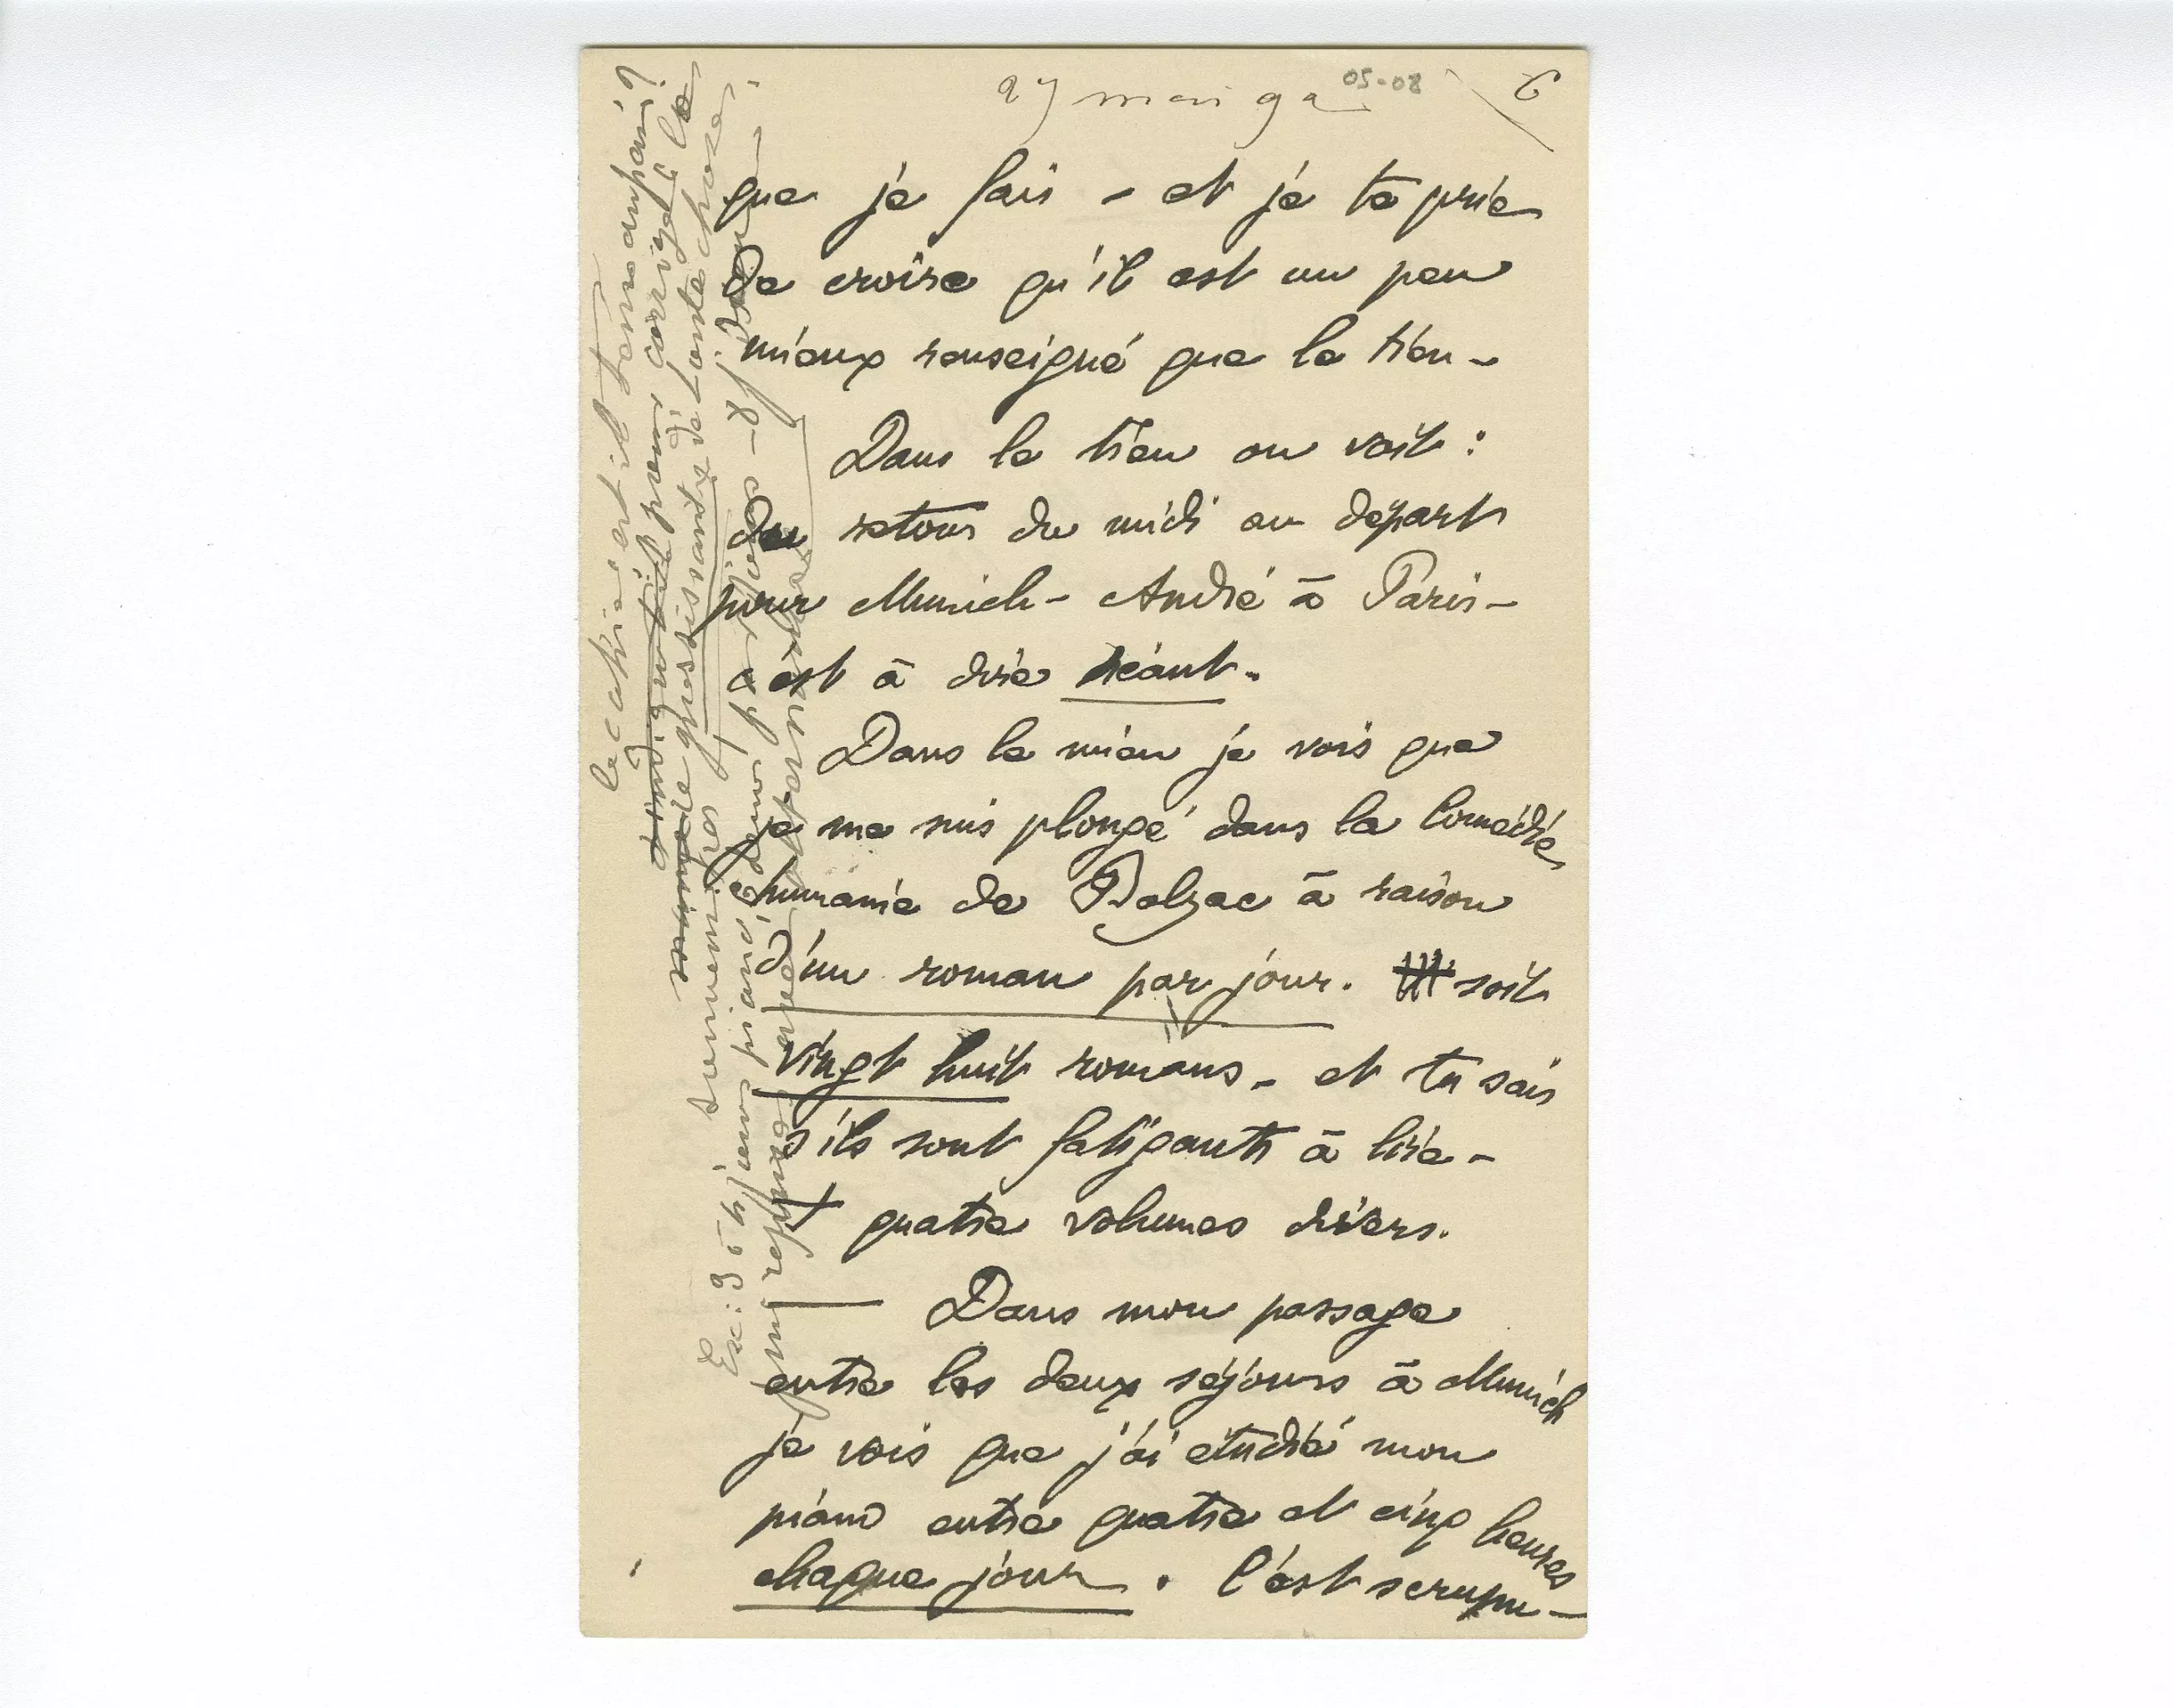 27 mai 92
05-08
6
que je fais - et je te prie
de croire qu'il est un peu
mieux renseigné que le tien -
Dans le tien on voit :
du retour du midi au départ
pour Munich - André à Paris -
c'est à dire néant.
Dans le mien je vois que
je me suis plongé dans la Comédie
humaine de Balzac à raison
d'un roman par jour. soit
vingt huit romans - et tu sais
s'ils sont fatigants à lire -
+ quatre volumes divers.
Dans mon passage
entre les deux séjours à Munich
je vois que j'ai étudié mon
piano entre quatre et cinq heures
chaque jour. C'est scrupu-
le cahier est il
preuve corrige à la
grossissante de toute chose
souvenirs
Ex: 3 à 4 jours piano, par jour - et j'
qui reprend avec